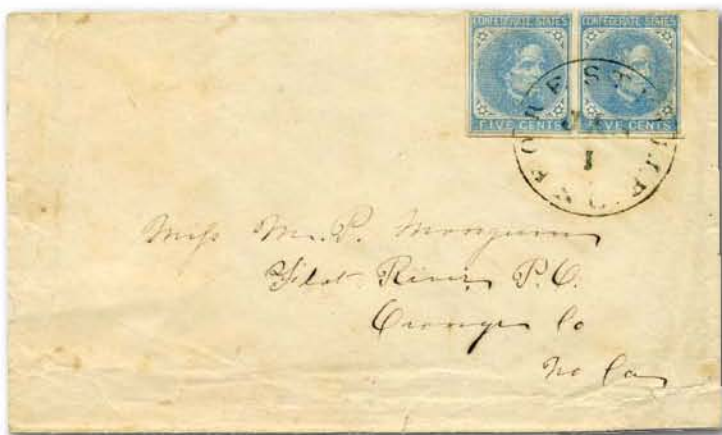 CONFEDERATE STATES CONFEDERATE STATES
FIVE CENTS FIVE CENTS
1
Miss M. P. Mangum
Flat River P.O.
Orange Co
No Ca